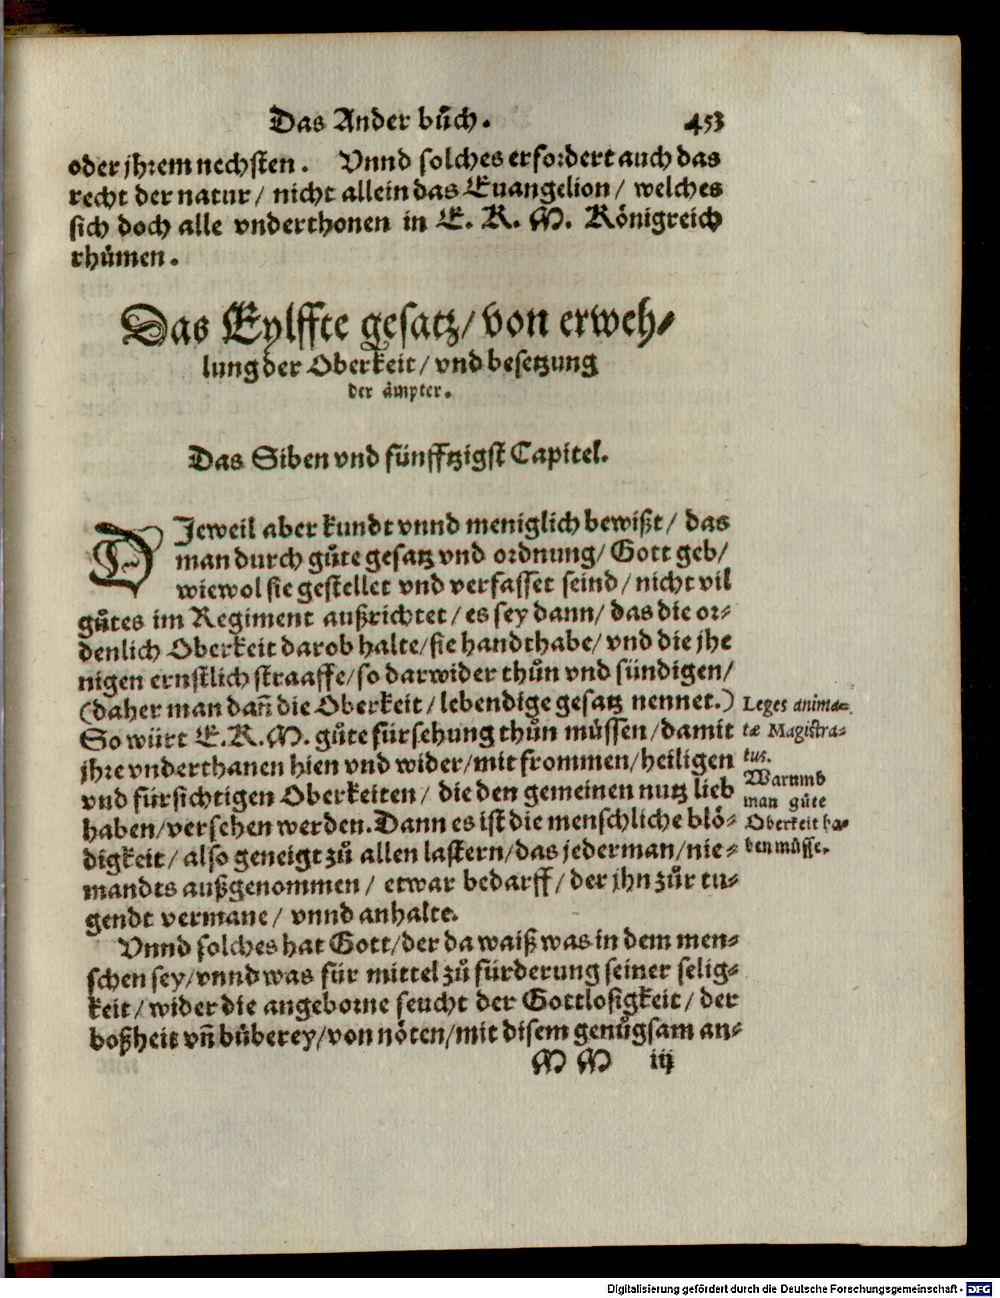 Das Ander bůch. 453
oder jhrem nechsten. Vnnd solches erfordert auch das
recht der natur/ nicht allein das Euangelion/ welches
sich doch alle vnderthonen in E. K. M. Königreich
rhůmen.
Das Eylffte gesatz/ von erweh-
lung der Oberkeit/ vnd besetzung
der ämpter.
Das Siben vnd fünfftzigst Capitel.
DJeweil aber kundt vnnd meniglich bewißt/ das
man durch gůte gesatz vnd ordnung/ Gott geb/
wiewol sie gestellet vnd verfasset seind/ nicht vil
gůtes im Regiment außrichtet/ es sey dann/ das die or-
denlich Oberkeit darob halte/ sie handthabe/ vnd die jhe
nigen ernstlich straaffe/ so darwider thůn vnd sündigen/
(daher man dañ die Oberkeit/ lebendige gesatz nennet.)
So würt E. K. M. gůte fürsehung thůn müssen/ damit
jhre vnderthanen hien vnd wider/ mit frommen/ heiligen
vnd fürsichtigen Oberkeiten/ die den gemeinen nutz lieb
haben/ versehen werden. Dann es ist die menschliche blö-
digkeit/ also geneigt zů allen lastern/ das jederman/ nie-
mandts außgenommen/ etwar bedarff/ der jhn zůr tu-
gendt vermane/ vnnd anhalte.
Vnnd solches hat Gott/ der da waiß was in dem men-
schen sey/ vnnd was für mittel zů fürderung seiner selig-
keit/ wider die angeborne seucht der Gottlosigkeit/ der
boßheit vñ büberey/ von nöten/ mit disem genůgsam an-
MM iij
Leges anima-
tæ Magistra-
tus.
Warumb
man gůte
Oberkeit ha-
ben müsse.
Digitalisierung gefördert durch die Deutsche Forschungsgemeinschaft - DFG